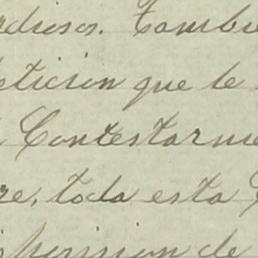 rdioso. Tambie
eticion que le
Contestarme
re, toda esta
isposicion de